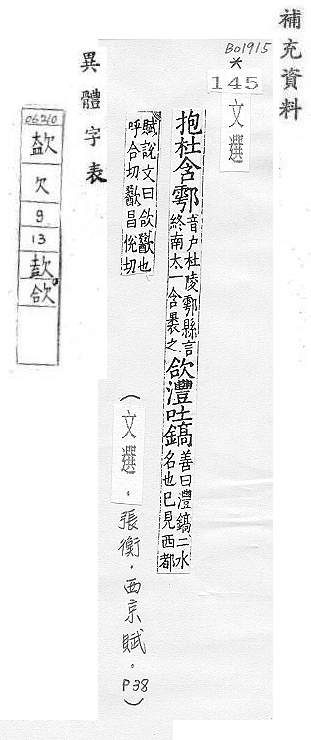 補充資料
B01915
*
145
文選
抱杜含鄠音户杜陵鄠縣言終南太一含裹之欱灃吐鎬善曰灃鎬二水名也已見西都
賦說文曰欱歠也
呼合切歠昌恱切
(文選。張衡。西京賦。P38)
異體字表
06210
欠
9
13
欱